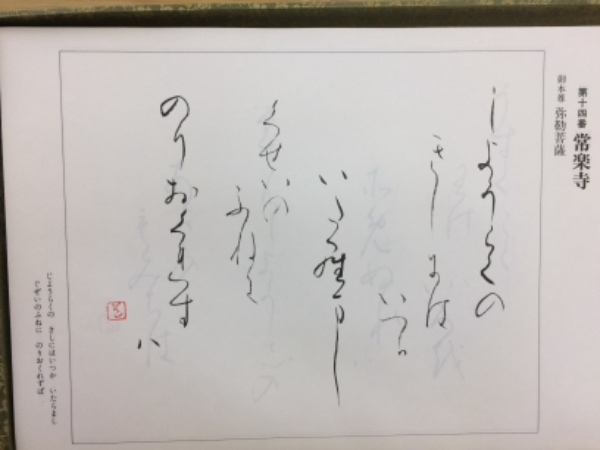 第十四番 常楽寺
御本尊 弥勒菩薩
じやうらくの
きしには
いつか
いたらまし
ぐぜいの
ふねに
のりおくれずは
じょうらくの きしにはいつか いたらまし
ぐぜいのふねに のりおくれずば